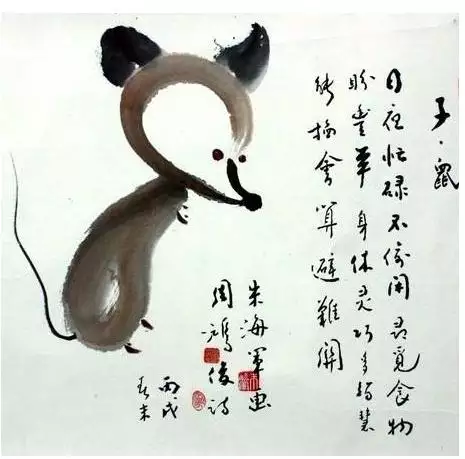 子·鼠
日夜忙碌不偷闲寻觅食物
盼豐年身体灵巧多智慧
能掐會算避難關
朱海军画
周鸿俊诗
丙戌
春末